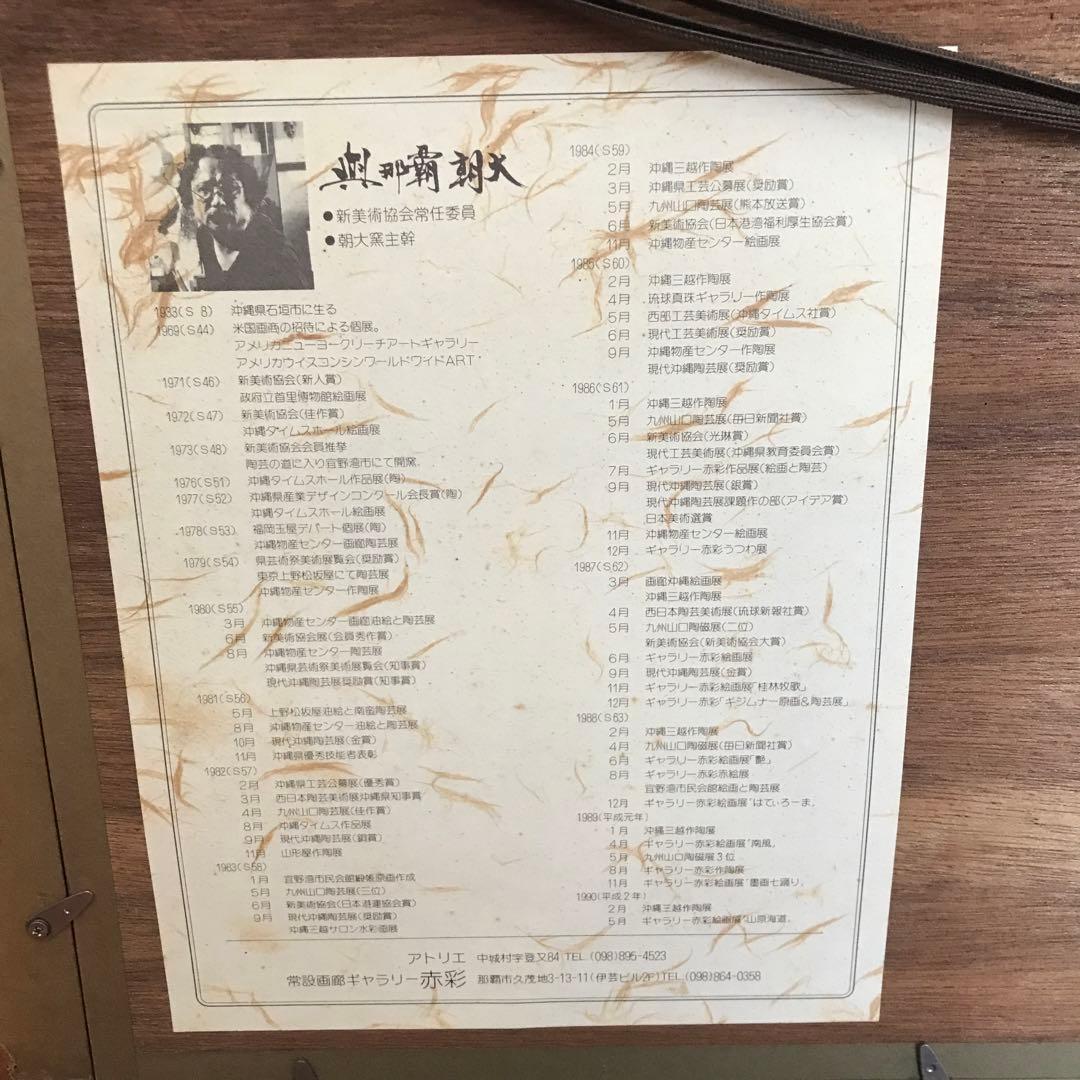 與那覇朝大
●新美術協会常任委員
●朝大窯主幹
1933(S 8) 沖縄県石垣市に生る
1969(S44) 米国画商の招待による個展。
アメリカニューヨークリーチアートギャラリー
アメリカウイスコンシンワールドワイドART
1971(S46) 新美術協会(新人賞)
政府立首里博物館絵画展
1972(S47) 新美術協会(佳作賞)
沖縄タイムスホール絵画展
1973(S48) 新美術協会会員推挙
陶芸の道に入り宜野湾市にて開窯.
1976(S51) 沖縄タイムスホール作品展(陶)
1977(S52) 沖縄県産業デザインコンクール会長賞(陶)
沖縄タイムスホール絵画展
1978(S53) 福岡玉屋デパート個展(陶)
沖縄物産センター画廊陶芸展
1979(S54) 県芸術祭美術展覧会(奨励賞)
東京上野松坂屋にて陶芸展
沖縄物産センター作陶展
1980(S55)
3月 沖縄物産センター画廊油絵と陶芸展
6月 新美術協会展(会員秀作賞)
8月 沖縄物産センター陶芸展
沖縄県芸術祭美術展覧会(知事賞)
現代沖縄陶芸展奨励賞(知事賞)
1981(S56)
5月 上野松坂屋油絵と南蛮陶芸展
8月 沖縄物産センター油絵と陶芸展
10月 現代沖縄陶芸展(金賞)
11月 沖縄県優秀技能者表彰
1982(S57)
2月 沖縄県工芸公募展(優秀賞)
3月 西日本陶芸美術展沖縄県知事賞
4月 九州山口陶芸展(佳作賞)
8月 沖縄タイムス作品展
9月 現代沖縄陶芸展(銅賞)
11月 山形屋作陶展
1983(S58)
1月 宜野湾市民会館緞帳原画作成
5月 九州山口陶芸展(三位)
6月 新美術協会(日本港運協会賞)
9月 現代沖縄陶芸展(奨励賞)
沖縄三越サロン水彩画展
1984(S59)
2月 沖縄三越作陶展
3月 沖縄県工芸公募展(奨励賞)
5月 九州山口陶芸展(熊本放送賞)
6月 新美術協会(日本港湾福利厚生協会賞)
11月 沖縄物産センター絵画展
1985(S60)
2月 沖縄三越作陶展
4月 琉球真珠ギャラリー作陶展
5月 西部工芸美術展(沖縄タイムス社賞)
6月 現代工芸美術展(奨励賞)
9月 沖縄物産センター作陶展
現代沖縄陶芸展(奨励賞)
1986(S61)
1月 沖縄三越作陶展
5月 九州山口陶芸展(毎日新聞社賞)
6月 新美術協会(光琳賞)
現代工芸美術展(沖縄県教育委員会賞)
7月 ギャラリー赤彩作品展(絵画と陶芸)
9月 現代沖縄陶芸展(銀賞)
現代沖縄陶芸展課題作の部(アイデア賞)
日本美術選賞
11月 沖縄物産センター絵画展
12月 ギャラリー赤彩うつわ展
1987(S62)
3月 画廊沖縄絵画展
沖縄三越作陶展
4月 西日本陶芸美術展(琉球新報社賞)
5月 九州山口陶磁展(二位)
新美術協会(新美術協会大賞)
6月 ギャラリー赤彩絵画展
9月 現代沖縄陶芸展(金賞)
11月 ギャラリー赤彩絵画展「桂林牧歌」
12月 ギャラリー赤彩「キジムナー原画&陶芸展」
1988(S63)
2月 沖縄三越作陶展
4月 九州山口陶磁展(毎日新聞社賞)
6月 ギャラリー赤彩絵画展「艶」
8月 ギャラリー赤彩赤絵展
宜野湾市民会館絵画と陶芸展
12月 ギャラリー赤彩絵画展「はてぃろーま」
1989(平成元年)
1月 沖縄三越作陶展
4月 ギャラリー赤彩絵画展「南風」
5月 九州山口陶磁展3位
8月 ギャラリー赤彩作陶展
11月 ギャラリー赤彩絵画展「墨画七踊り」
1990(平成2年)
2月 沖縄三越作陶展
5月 ギャラリー赤彩絵画展「山原海道」
アトリエ 中城村字登又84 TEL (098)895-4523
常設画廊ギャラリー赤彩 那覇市久茂地3-13-11(伊芸ビル2F)TEL(098)864-0358